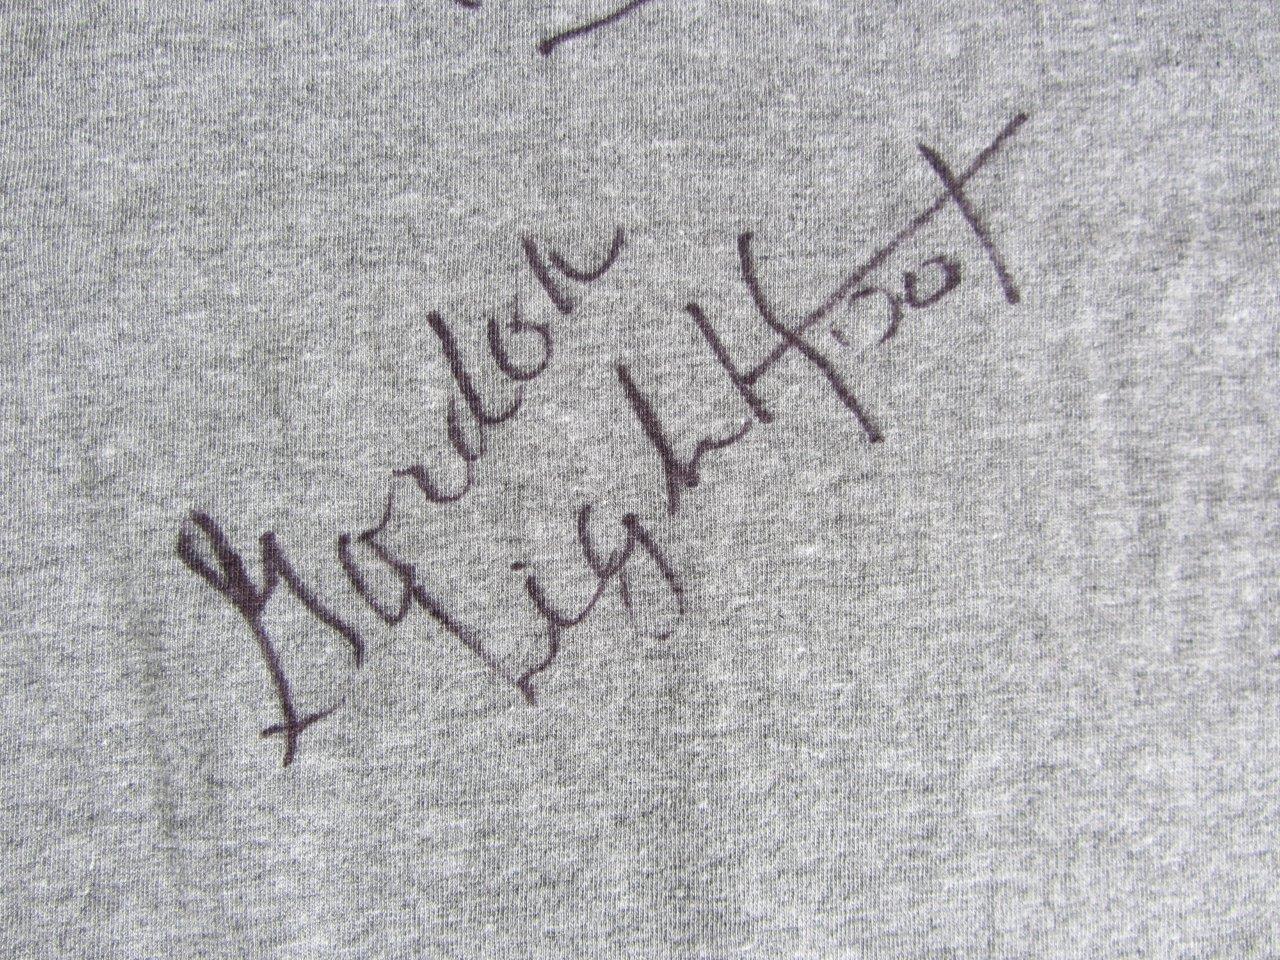 Gordon
Lightfoot